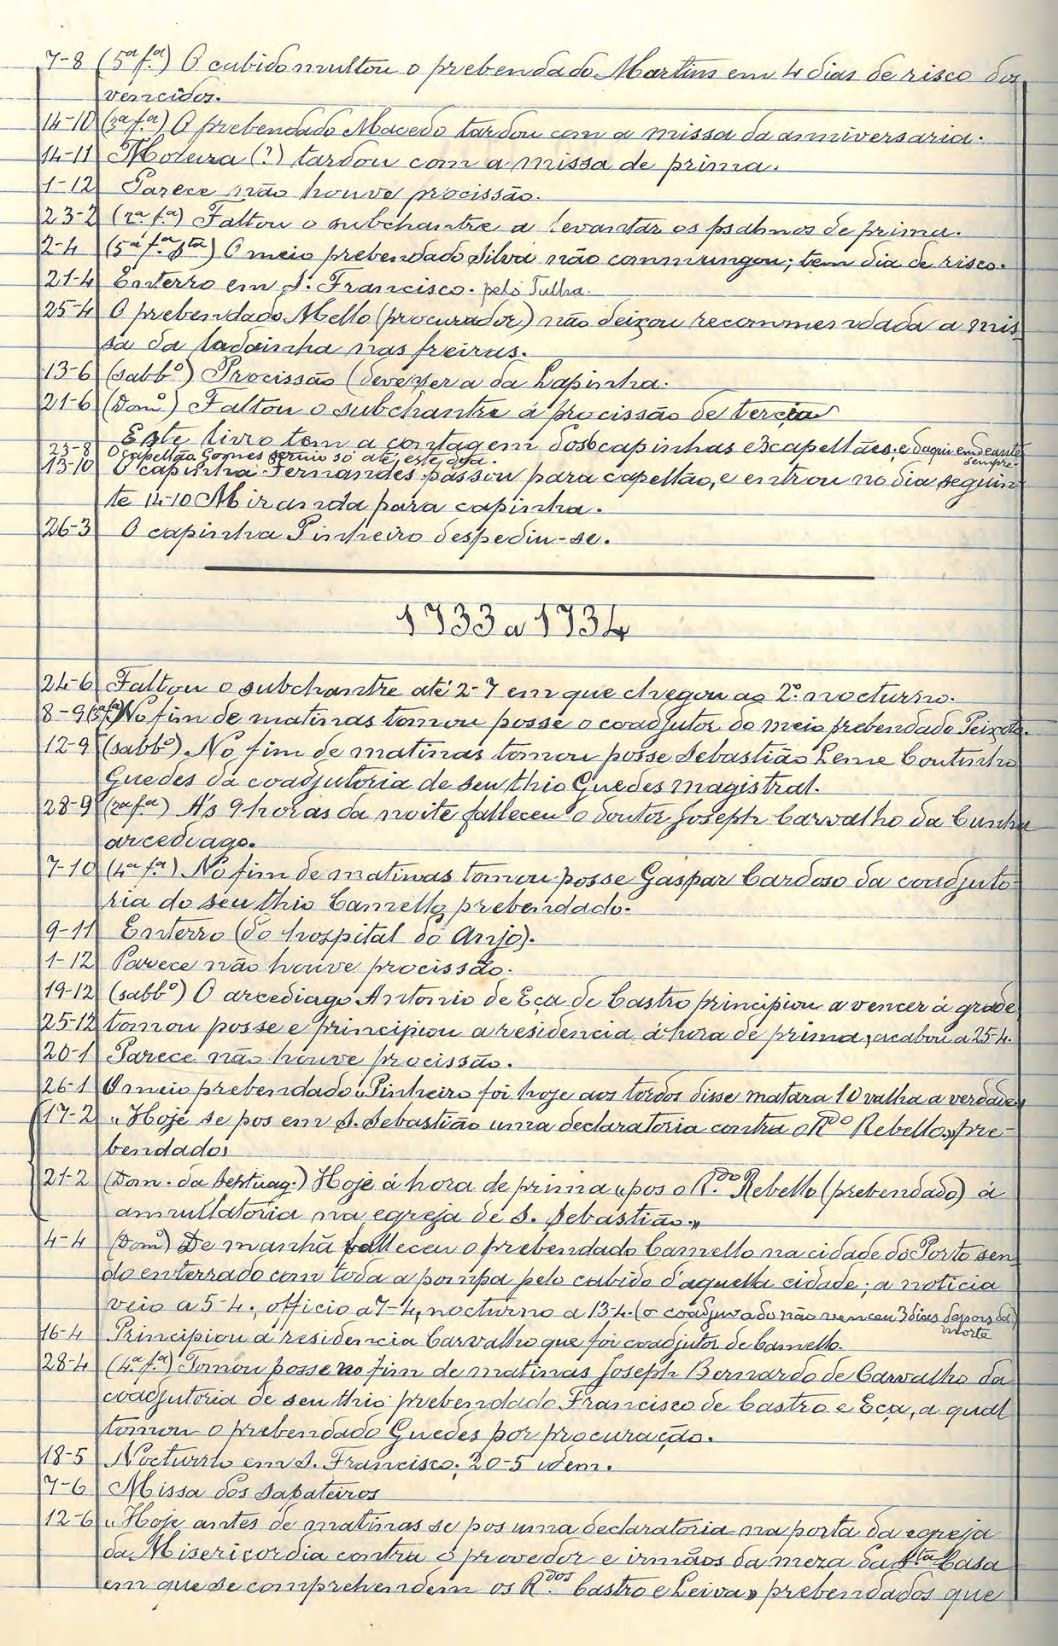 7-8 (5ª fª) O cabido multou o prebendado Martins em 4 dias de risco dos
vencidos.
14-10 (3ª fª) O prebendado Macedo tardou com a missa da anniversaria.
14-11 Moreira (?) tardou com a missa de prima.
1-12 Parece não houve procissão.
23-2 (2ª fª) Faltou o subchantre a levantar os psalmos de prima.
2-4 (5ª fª Stª) O meio prebendado Silva não commungou; tem dia de risco.
21-4 Enterro em S. Francisco. pelo Tulha.
25-4 O prebendado Mello (procurador) não deixou recommendada a mis
sa da ladainha nas freiras.
13-6 (sabbº) Procissão (deve ser a da Lapinha.
21-6 (Domº) Faltou o subchantre á procissão de tercia
Este livro tem a contagem dos 6 capinhas e 3 capellães; e daqui em deante
sempre.
23-8 O capellão Gomes serviu só até este dia.
13-10 O capinha Fernandes passou para capellão, e entrou no dia seguin
te 14-10 Miranda para capinha.
26-3 O capinha Pinheiro despediu-se.
1733 a 1734
24-6 Faltou o subchantre até 2-7 em que chegou ao 2º nocturno.
8-9 (3ª fª) No fim de matinas tomou posse o coadjutor do meio prebendado Peixoto.
12-9 (sabbº) No fim de matinas tomou posse Sebastião Leme Coutinho
Guedes da coadjutoria de seu thio Guedes magistral.
28-9 (2ª fª) A's 9 horas da noite falleceu o doutor Joseph Carvalho da Cunha
arcediago.
7-10 (4ª fª) No fim de matinas tomou posse Gaspar Cardoso da coadjuto-
ria do seu thio Camello, prebendado.
9-11 Enterro (do hospital do Anjo).
1-12 Parece não houve procissão.
19-12 (sabbº) O arcediago Antonio de Eça de Castro principiou a vencer á grade
25-12 tomou posse e principiou a residencia á hora de prima, acabou a 25-4.
20-1 Parece não houve procissão.
26-1 O meio prebendado "Pinheiro foi hoje aos tordos disse matara 10 valha a verdade"
17-2 "Hoje se pos em S. Sebastião uma declaratoria contra o Rdo Rebello" pre-
bendado,
21-2 (Dom. da Septuag.) Hoje á hora de prima "pos o R.do Rebello (prebendado) á
annullatoria na egreja de S. Sebastião."
4-4 (Domº) De manhã falleceu o prebendado Camello na cidade do Porto sen
do enterrado com toda a pompa pelo cabido d'aquella cidade; a noticia
veio a 5-4, officio a 7-4, nocturno a 13-4. (o coadjuvado não venceu 3 dias depois da
morte
16-4 Principiou a residencia Carvalho que foi coadjutor de Camello.
28-4 (4ª fª) Tomou posse no fim de matinas Joseph Bernardo de Carvalho da
coadjutoria de seu thio prebendado Francisco de Castro e Eça, a qual
tomou o prebendado Guedes por procuração.
18-5 Nocturno em S. Francisco; 20-5 idem.
7-6 Missa dos sapateiros
12-6 "Hoje antes de matinas se pos uma declaratoria na porta da egreja
da Misericordia contra o provedor e irmãos da meza da Sta Casa
em que se comprehendem os R.dos Castro e Leiva" prebendados que